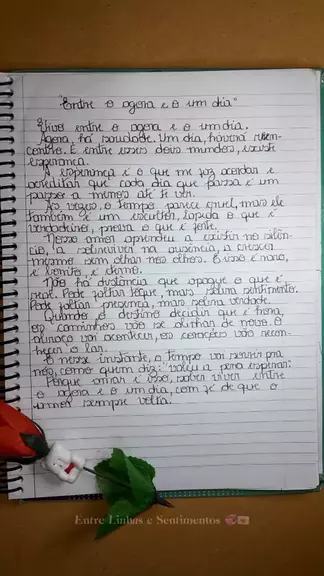 "Entre o agora e o um dia"
Vivo entre o agora e o um dia.
Agora, há saudade. Um dia, haverá reen-
contro. E entre esses dois mundos, existe
esperança.
A esperança é o que me faz acordar e
acreditar que cada dia que passa é um
passo a menos até te ver.
Às vezes, o tempo parece cruel, mas ele
também é um escultor, lapida o que é
verdadeiro, prova o que é forte.
Nosso amor aprendeu a existir no silên-
cio, a sobreviver na ausência, a crescer
mesmo sem olhar nos olhos. E isso é raro,
é bonito, é divino.
Não há distância que apague o que é
real. Pode faltar toque, mas sobra sentimento.
Pode faltar presença, mas sobra verdade.
Quando o destino decidir que é hora,
os caminhos vão se alinhar de novo. O
abraço vai acontecer, os corações vão reco-
nhecer o lar.
E nesse instante, o tempo vai sorrir pra
nós, como quem diz: valeu a pena esperar.
Porque amar é isso, saber viver entre
o agora e o um dia, com fé de que o
amor sempre volta.
Entre Linhas e Sentimentos